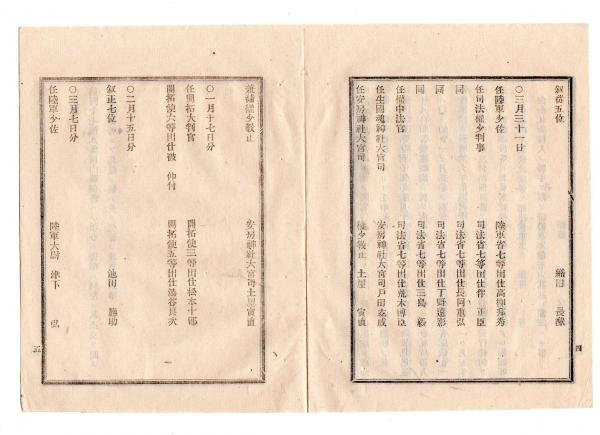 叙從五位 　　　　長𤋮
○三月三十一日
任陸軍少佐 陸軍省七等出仕高柳邦秀
任司法權少判事 司法省七等出仕伴 正臣
同 司法省七等出仕長岡重弘
同 司法省七等出仕丁野遠影
同 司法省七等出仕三島 毅
任權中法官 司法省七等出仕荒木博臣
任生國魂神社大宮司 安房神社大宮司戸田忠成
任安房神社大宮司 權少教正 土屋 寅直
四
兼補權少教正 安房神社大宮司土屋寅直
○一月十七日分
任開拓大判官 開拓使三等出仕松本十郎
開拓使六等出仕被 仰付 開拓使五等出仕湯谷長次
○二月十五日分
叙正七位 池田 勝助
○三月七日分
任陸軍少佐 陸軍大尉 津下 弘
五